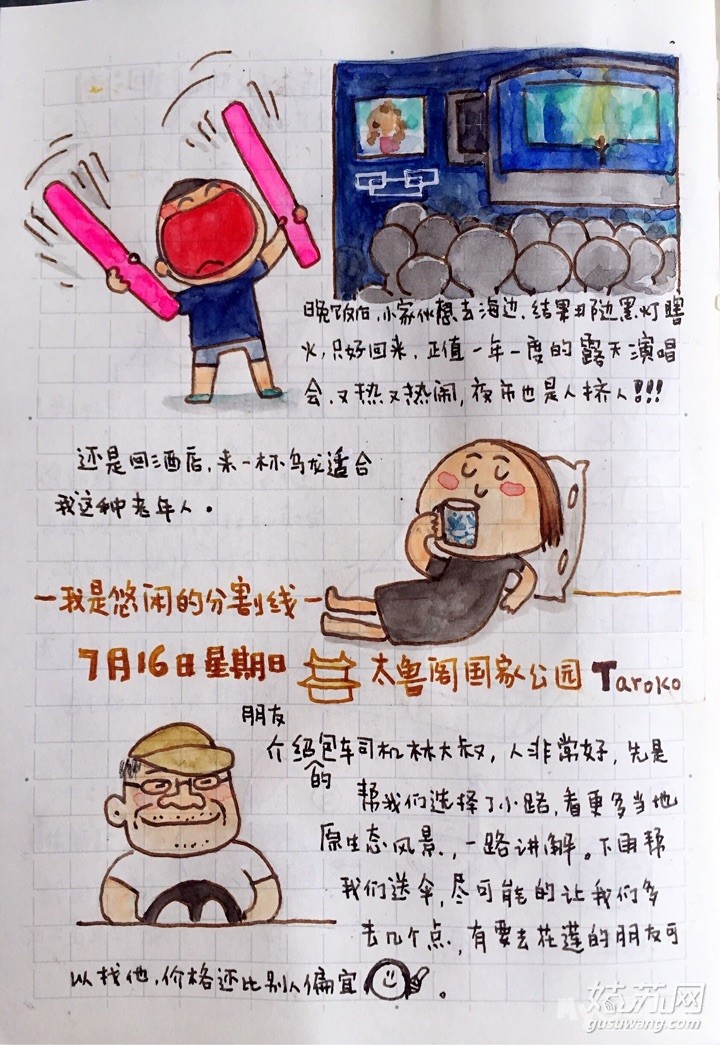 晚饭后，小家伙想去海边，结果那边黑灯瞎
火，只好回来，正值一年一度的露天演唱
会，又热又热闹，夜市也是人挤人!!!
还是回酒店，来一杯乌龙适合
我这种老年人。
－我是悠闲的分割线－
7月16日星期日 太鲁阁国家公园 Taroko
朋友
介绍包车司机林大叔，人非常好，先是
的
帮我们选择了小路，看更多当地
原生态风景，一路讲解。下雨帮
我们送伞，尽可能的让我们多
去几个点，有要去花莲的朋友可
以找他，价格还比别人偏宜。
姑苏网
gusuwang.com